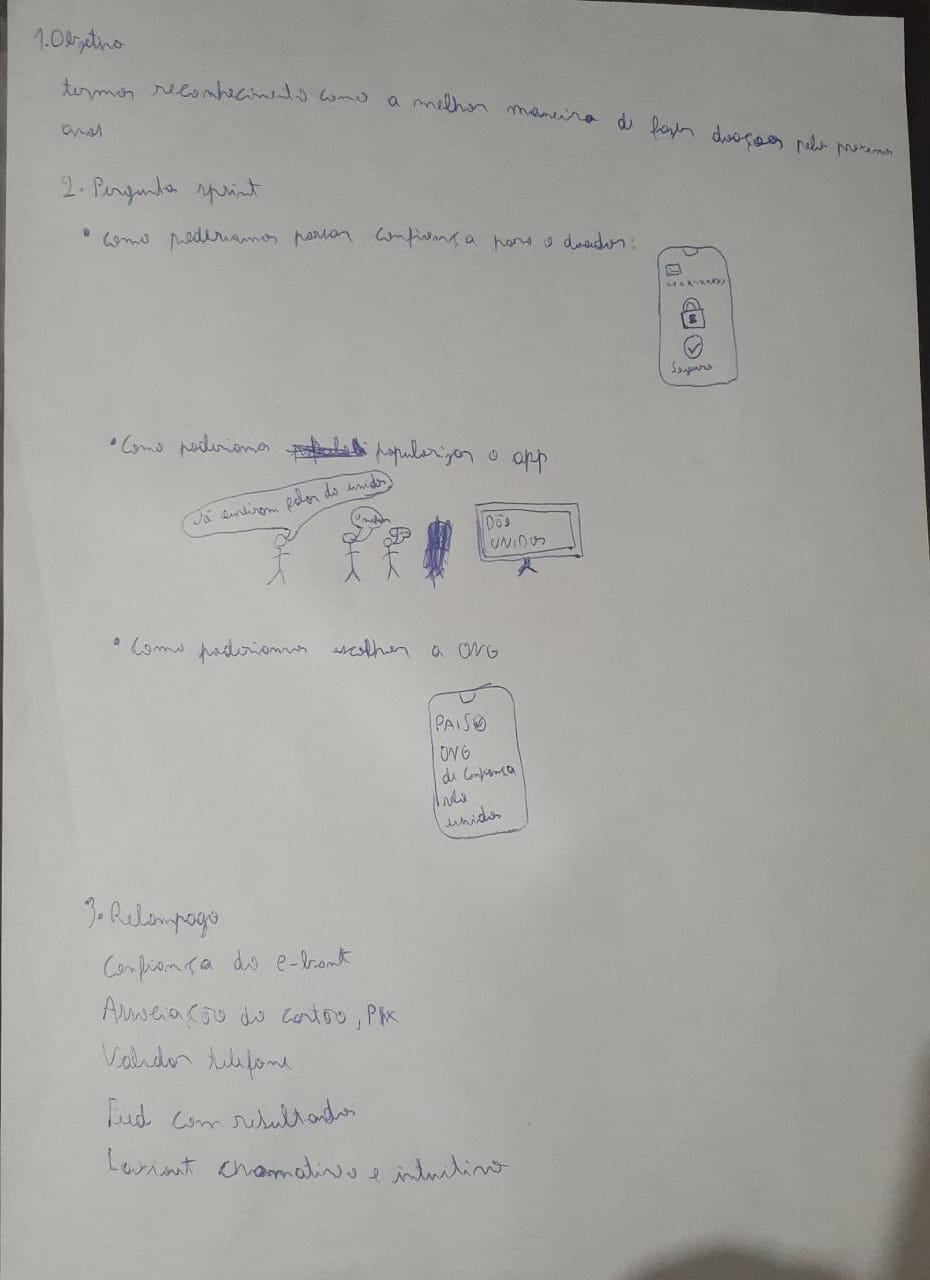 1. Objetivo
termos reconhecimento como a melhor maneira de fazer doações pelos proximos
anos
2. Perguntas sprint
• Como poderiamos passar confiança para o doador:
Seguro
• Como poderiamos popularizar o app
Já ouviram falar do unidos
Unidos
DOS
UNIDOS
• Como poderiamos escolher a ONG
PAIS
ONG
de confiança
unidos
3. Relampago
Confiança do e-bank
Associação do cartão, PIX
Validar telefone
Feed com resultados
Laiout chamativo e intuitivo